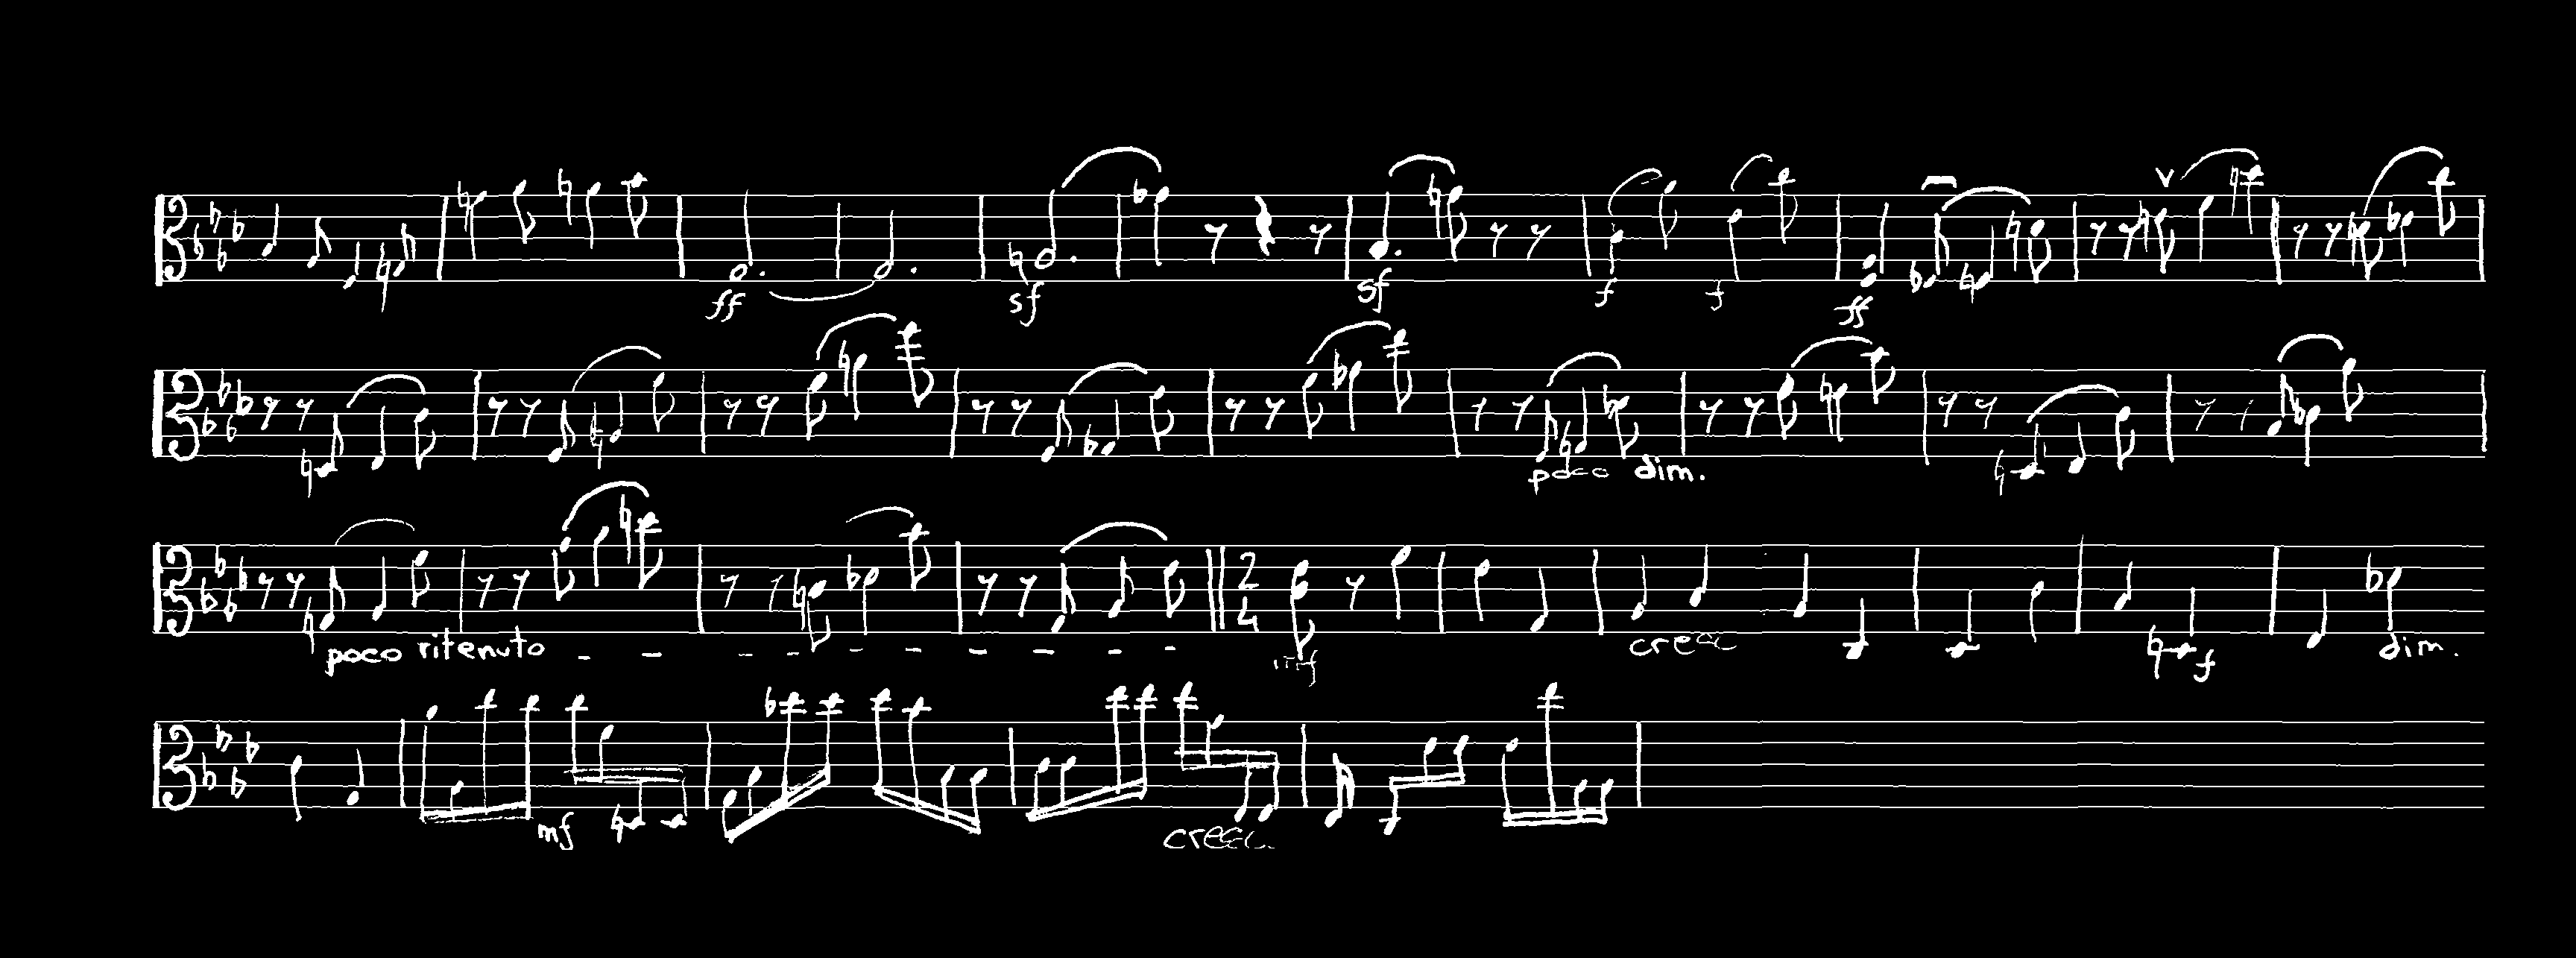 ff sf sf f f ff
poco dim.
2
4
poco ritenuto mf cresc f dim.
mf cresc.